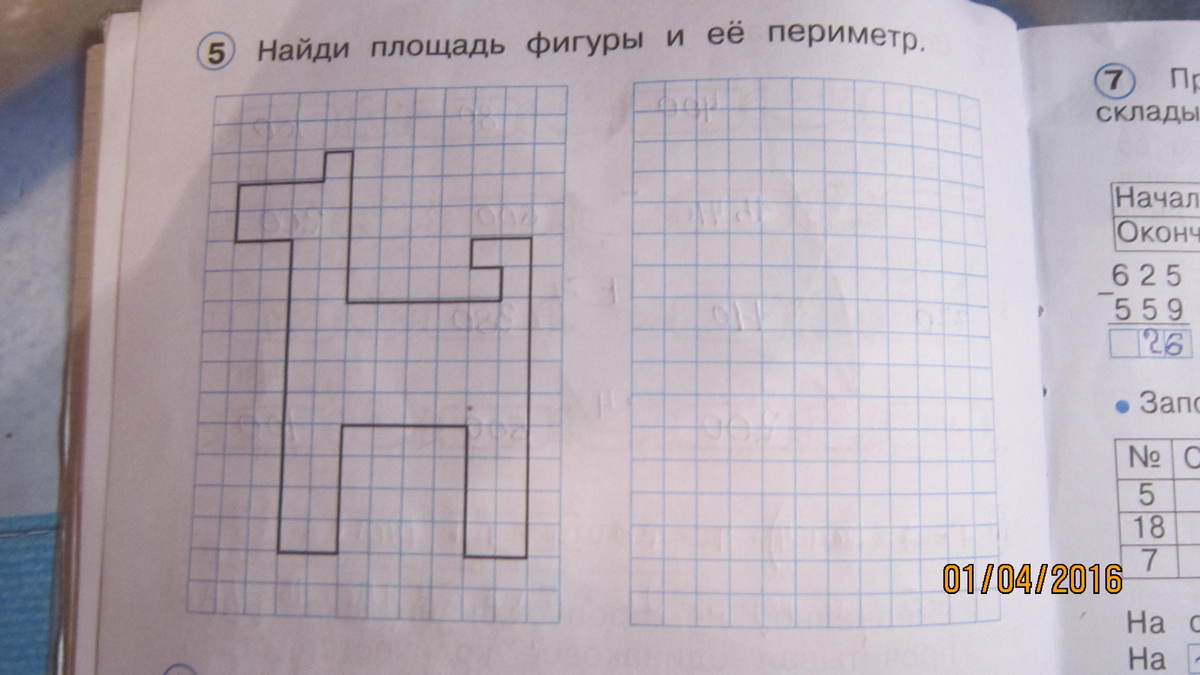 5 Найди площадь фигуры и её периметр.
7 Пр
склады
Начал
Оконч
625
− 559
26
• Запо
№ С
5
18
7
01/04/2016
На с
На